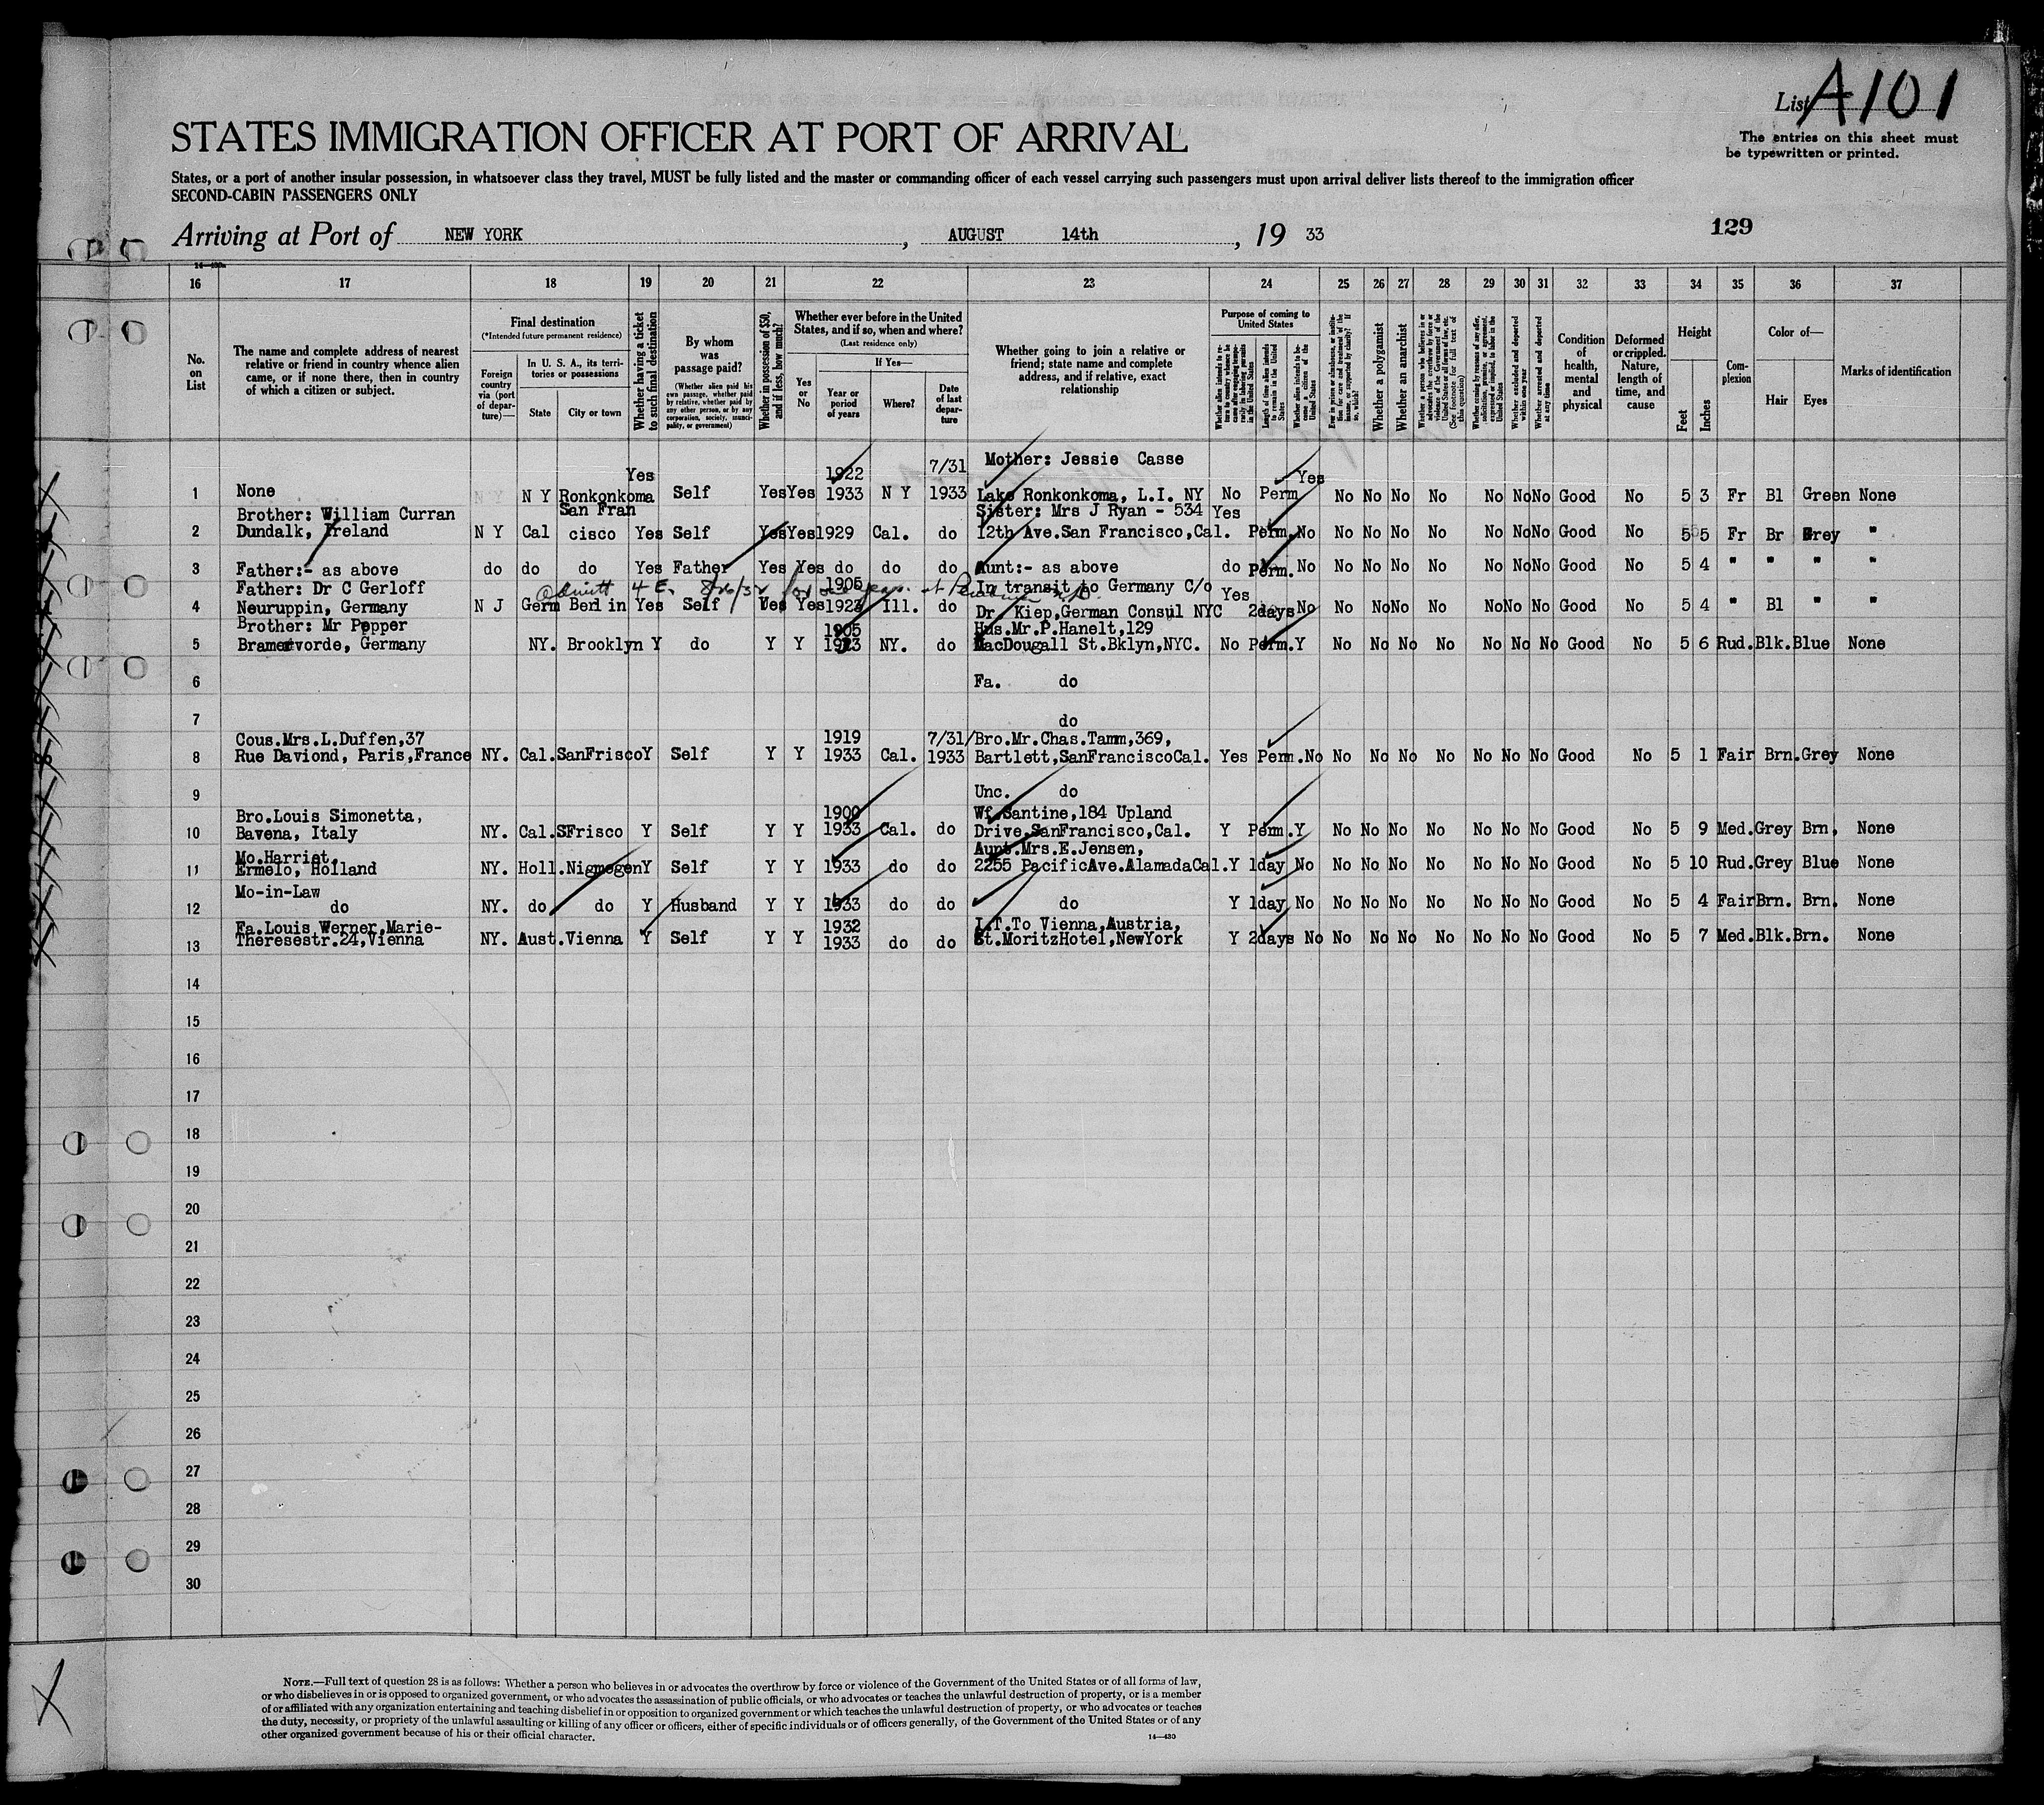 List A101
STATES IMMIGRATION OFFICER AT PORT OF ARRIVAL
The entries on this sheet must
be typewritten or printed.
States, or a port of another insular possession, in whatsoever class they travel, MUST be fully listed and the master or commanding officer of each vessel carrying such passengers must upon arrival deliver lists thereof to the immigration officer
SECOND-CABIN PASSENGERS ONLY
Arriving at Port of NEW YORK, AUGUST 14th, 19 33
129
14—430
16 17 18 19 20 21 22 23 24 25 26 27 28 29 30 31 32 33 34 35 36 37
No. on List
The name and complete address of nearest relative or friend in country whence alien came, or if none there, then in country of which a citizen or subject.
Final destination
(*Intended future permanent residence)
Foreign country via (port of departure)—
In U. S. A., its territories or possessions
State
City or town
Whether having a ticket to such final destination
By whom was passage paid?
(Whether alien paid his own passage, whether paid by relative, whether paid by any other person, or by any corporation, society, municipality, or government)
Whether in possession of $50, and if less, how much?
Whether ever before in the United States, and if so, when and where?
(Last residence only)
Yes or No
If Yes—
Year or period of years
Where?
Date of last departure
Whether going to join a relative or friend; state name and complete address, and if relative, exact relationship
Purpose of coming to United States
Length of time alien intends to remain in the United States
Whether alien intends to become a citizen of the United States
Whether a polygamist
Whether an anarchist
Whether arrested and deported at any time
Condition of health, mental and physical
Deformed or crippled. Nature, length of time, and cause
Height
Feet
Inches
Complexion
Color of—
Hair
Eyes
Marks of identification
Yes 1922 7/31 Mother: Jessie Casse Yes
1 None N Y N Y Ronkonkoma Self Yes Yes 1933 N Y 1933 Lake Ronkonkoma, L.I. NY No Perm No No No No No No No Good No 5 3 Fr Bl Green None
Brother: William Curran San Fran Sister: Mrs J Ryan - 534 Yes
2 Dundalk, Ireland N Y Cal cisco Yes Self Yes Yes 1929 Cal. do 12th Ave.San Francisco,Cal. Perm.No No No No No No No No Good No 5 5 Fr Br Grey "
3 Father:- as above do do do Yes Father Yes Yes do do do Aunt:- as above do Perm.No No No No No No No No Good No 5 4 " " " "
Father: Dr C Gerloff 1905 In transit to Germany C/o Yes
4 Neuruppin, Germany N J Germ Berlin Yes Self Yes Yes 1923 Ill. do Dr. Kiep,German Consul NYC 2days No No No No No No No No Good No 5 4 " Bl " "
Brother: Mr Pepper 1905 Hus.Mr.P.Hanelt,129
5 Bramervorde, Germany NY. Brooklyn Y do Y Y 1923 NY. do MacDougall St.Bklyn,NYC. No Perm.Y No No No No No No No Good No 5 6 Rud.Blk.Blue None
6 Fa. do
7 do
Cous.Mrs.L.Duffen,37 1919 7/31/ Bro.Mr.Chas.Tamm,369,
8 Rue Daviond, Paris,France NY. Cal.SanFrisco Y Self Y Y 1933 Cal. 1933 Bartlett,SanFranciscoCal. Yes Perm.No No No No No No No No Good No 5 1 Fair Brn.Grey None
9 Unc. do
Bro.Louis Simonetta, 1900 Wf.Santine,184 Upland
10 Bavena, Italy NY. Cal.SFrisco Y Self Y Y 1933 Cal. do Drive,SanFrancisco,Cal. Y Perm.Y No No No No No No No Good No 5 9 Med.Grey Brn. None
Mo.Harriet, Aunt.Mrs.E.Jensen,
11 Ermelo, Holland NY. Holl.Nigmegen Y Self Y Y 1933 do do 2255 PacificAve.AlamadaCal. Y 1day No No No No No No No No Good No 5 10 Rud.Grey Blue None
Mo-in-Law
12 do NY. do do Y Husband Y Y 1933 do do do Y 1day No No No No No No No No Good No 5 4 Fair Brn. Brn. None
Fa.Louis Werner,Marie- 1932 I.T.To Vienna,Austria,
13 Theresestr.24,Vienna NY. Aust.Vienna Y Self Y Y 1933 do do St.MoritzHotel,NewYork Y 2days No No No No No No No No Good No 5 7 Med.Blk.Brn. None
14
15
16
17
18
19
20
21
22
23
24
25
26
27
28
29
30
NOTE.—Full text of question 28 is as follows: Whether a person who believes in or advocates the overthrow by force or violence of the Government of the United States or of all forms of law,
or who disbelieves in or is opposed to organized government, or who advocates the assassination of public officials, or who advocates or teaches the unlawful destruction of property, or is a member
of or affiliated with any organization entertaining and teaching disbelief in or opposition to organized government or which teaches the unlawful destruction of property, or who advocates or teaches
the duty, necessity, or propriety of the unlawful assaulting or killing of any officer or officers, either of specific individuals or of officers generally, of the Government of the United States or of any
other organized government because of his or their official character.
14—430